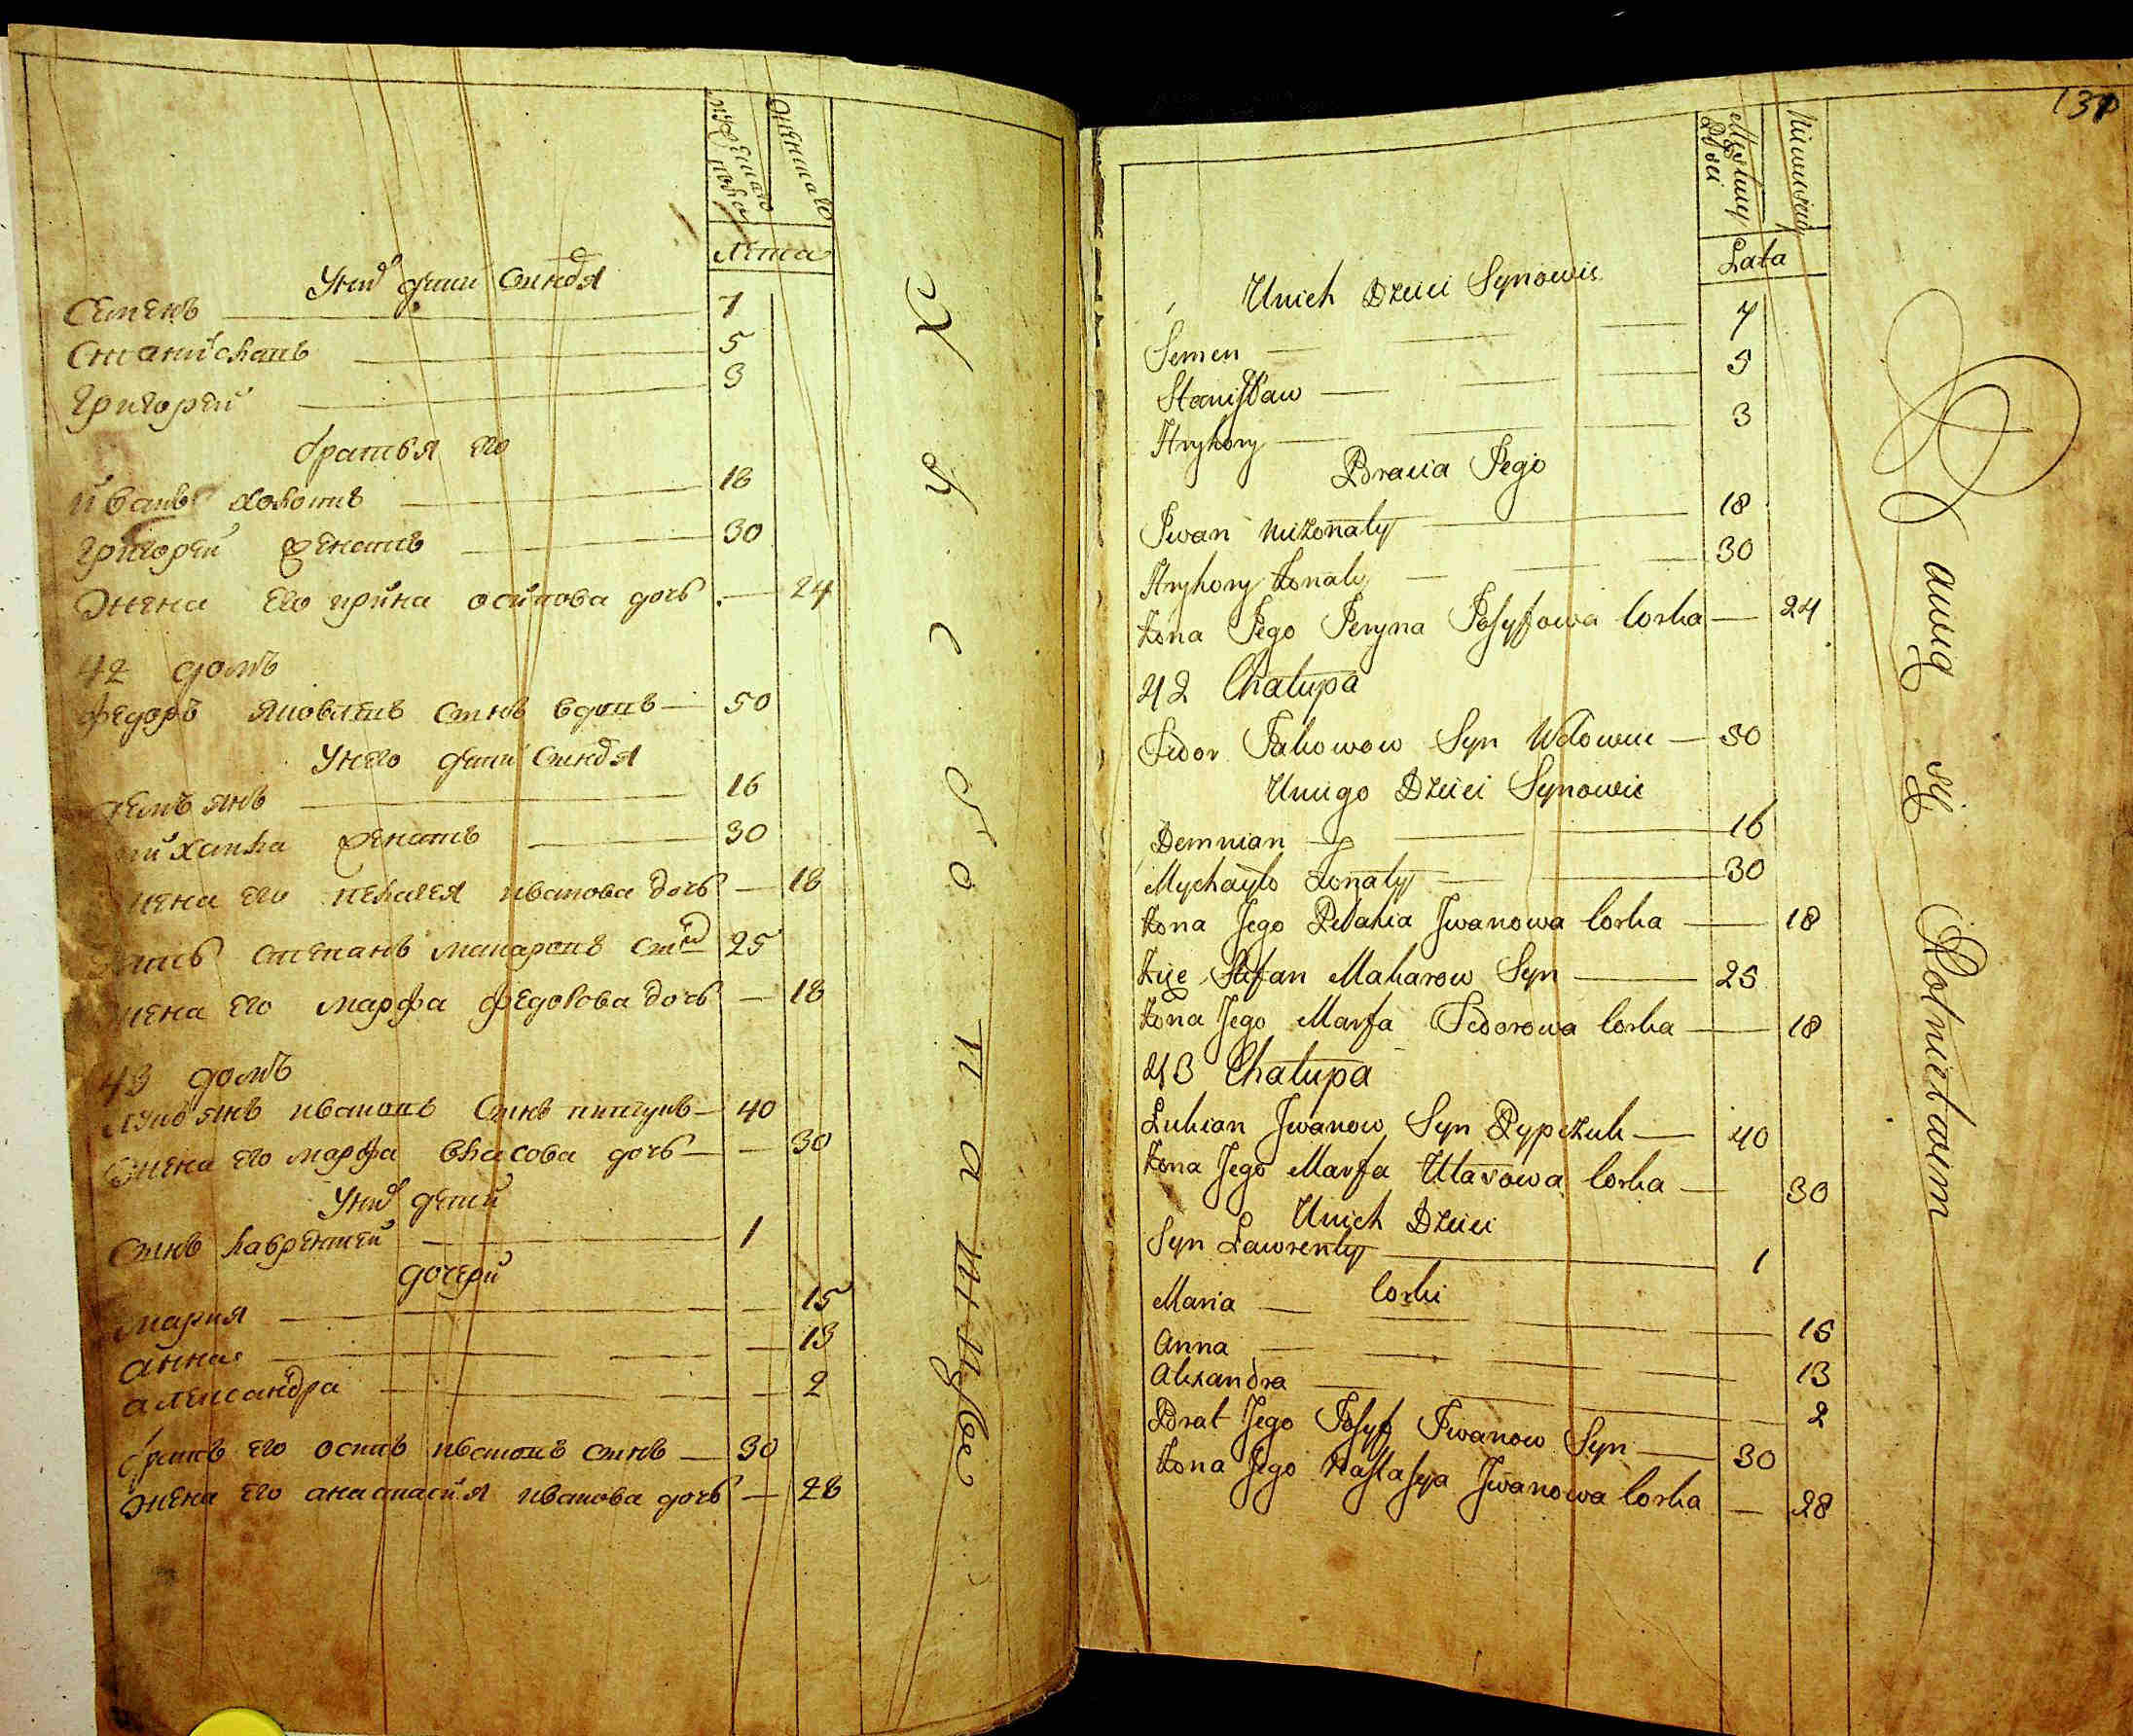 мужеска пола
женска
лѣта
У них дети сыновя
Семенъ 7
Станиславъ 5
Григорей 3
братья его
иванъ холотъ 18
григорей женатъ 30
жена его ирина осипова дочь 24
42 домъ
федоръ яковлевъ сынъ вдовъ 50
У него дети сыновя
демъянъ 16
михайла женатъ 30
жена его пелагея иванова дочь 18
зять степанъ макаровъ сынъ 25
жена его марфа федорова дочь 18
43 домъ
лукъянъ ивановъ сынъ 40
жена его марфа власова дочь 30
У них дети
сынъ лаврентей 1
дочери
мария 15
анна 13
александра 2
братъ его осипъ ивановъ сынъ 30
жена его анастасия иванова дочь 28
131
Męskiey Płci
Niewieściey
Lata
Unich Dzieci Synowie
Semen 7
Stanisław 5
Hryhory 3
Bracia Jego
Iwan nieżonaty 18
Hryhory żonaty 30
Żona Jego Jeryna Josyfowa Corka 24
42 Chałupa
Fedor Jakowow Syn Wdowiec 50
Uniego Dzieci Synowie
Demnian 16
Mychayło Żonaty 30
Żona Jego Pelahia Jwanowa Corka 18
Zięć Stefan Makarow Syn 25
Żona Jego Marfa Fedorowa Corka 18
43 Chałupa
Łukian Jwanow Syn Pypczuk 40
Żona Jego Marfa Ułasowa Corka 30
Unich Dzieci
Syn Ławrenty 1
Corki
Maria 15
Anna 13
Alexandra 2
Brat Jego Josyf Iwanow Syn 30
Żona Jego Nastasya Jwanowa Corka 28